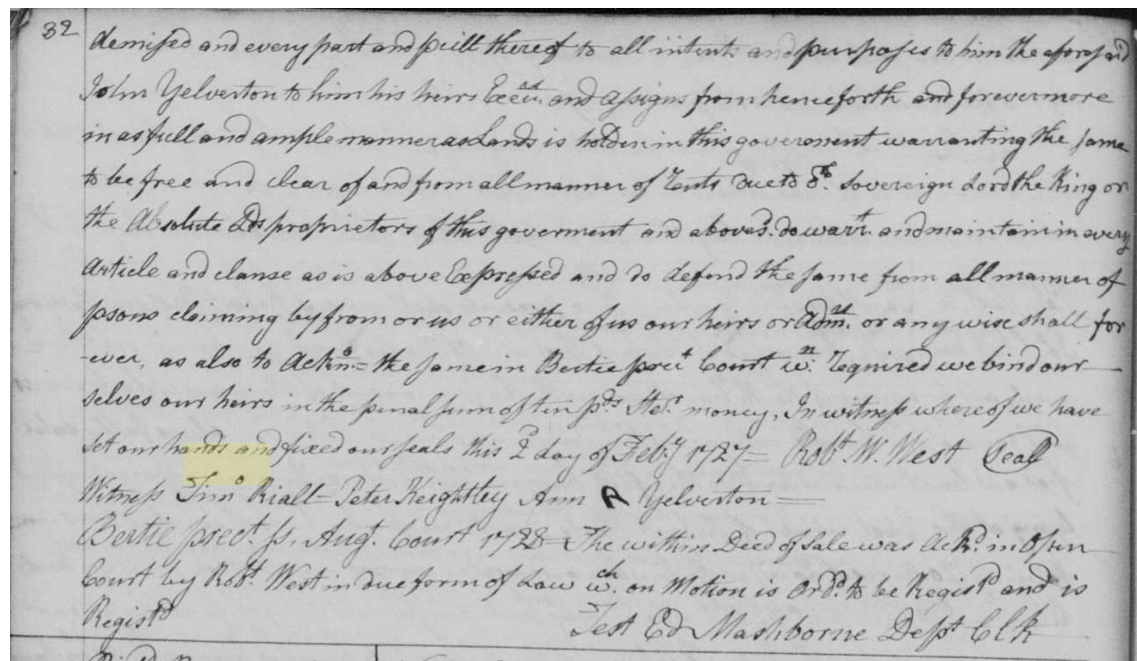 32
demised and every part and pcill thereof to all intents and purposes to him the aforesaid
John Yelverton to him his heirs Exers. and assigns from henceforth and forevermore
in as full and ample manner as Lands is holden in this goverment warranting the same
to be free and clear of and from all manner of Rents due to Or. Sovereign Lord the King or
the Absolute Lds proprietors of this goverment and aboves. do warrt. and maintain in every
Article and clause as is above Expressed and do defend the same from all manner of
psons claiming by from or us or either of us our heirs or Admrs. or any wise shall for
-ever, as also to Ackn.= the same in Bertie prect Court wn. Required we bind our
selves our heirs in the penal sum of ten pds Ster. money, In witness whereof we have
set our hands and fixed our seals this 2d day of Feby 1727= Robt. W. West Seal
Witness Timo Riall= Peter Keightley Ann A Yelverton=
Bertie prect. ss. Augt. Court 1728= The within Deed of Sale was Ackd. in Open
Court by Robt. West in due form of Law wch. on Motion is Ordd. to be Registd and is
Registd
Test Ed Mashborne Dept Clk